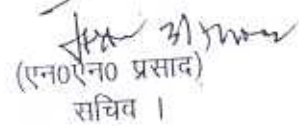 (एन०एन० प्रसाद)
सचिव ।